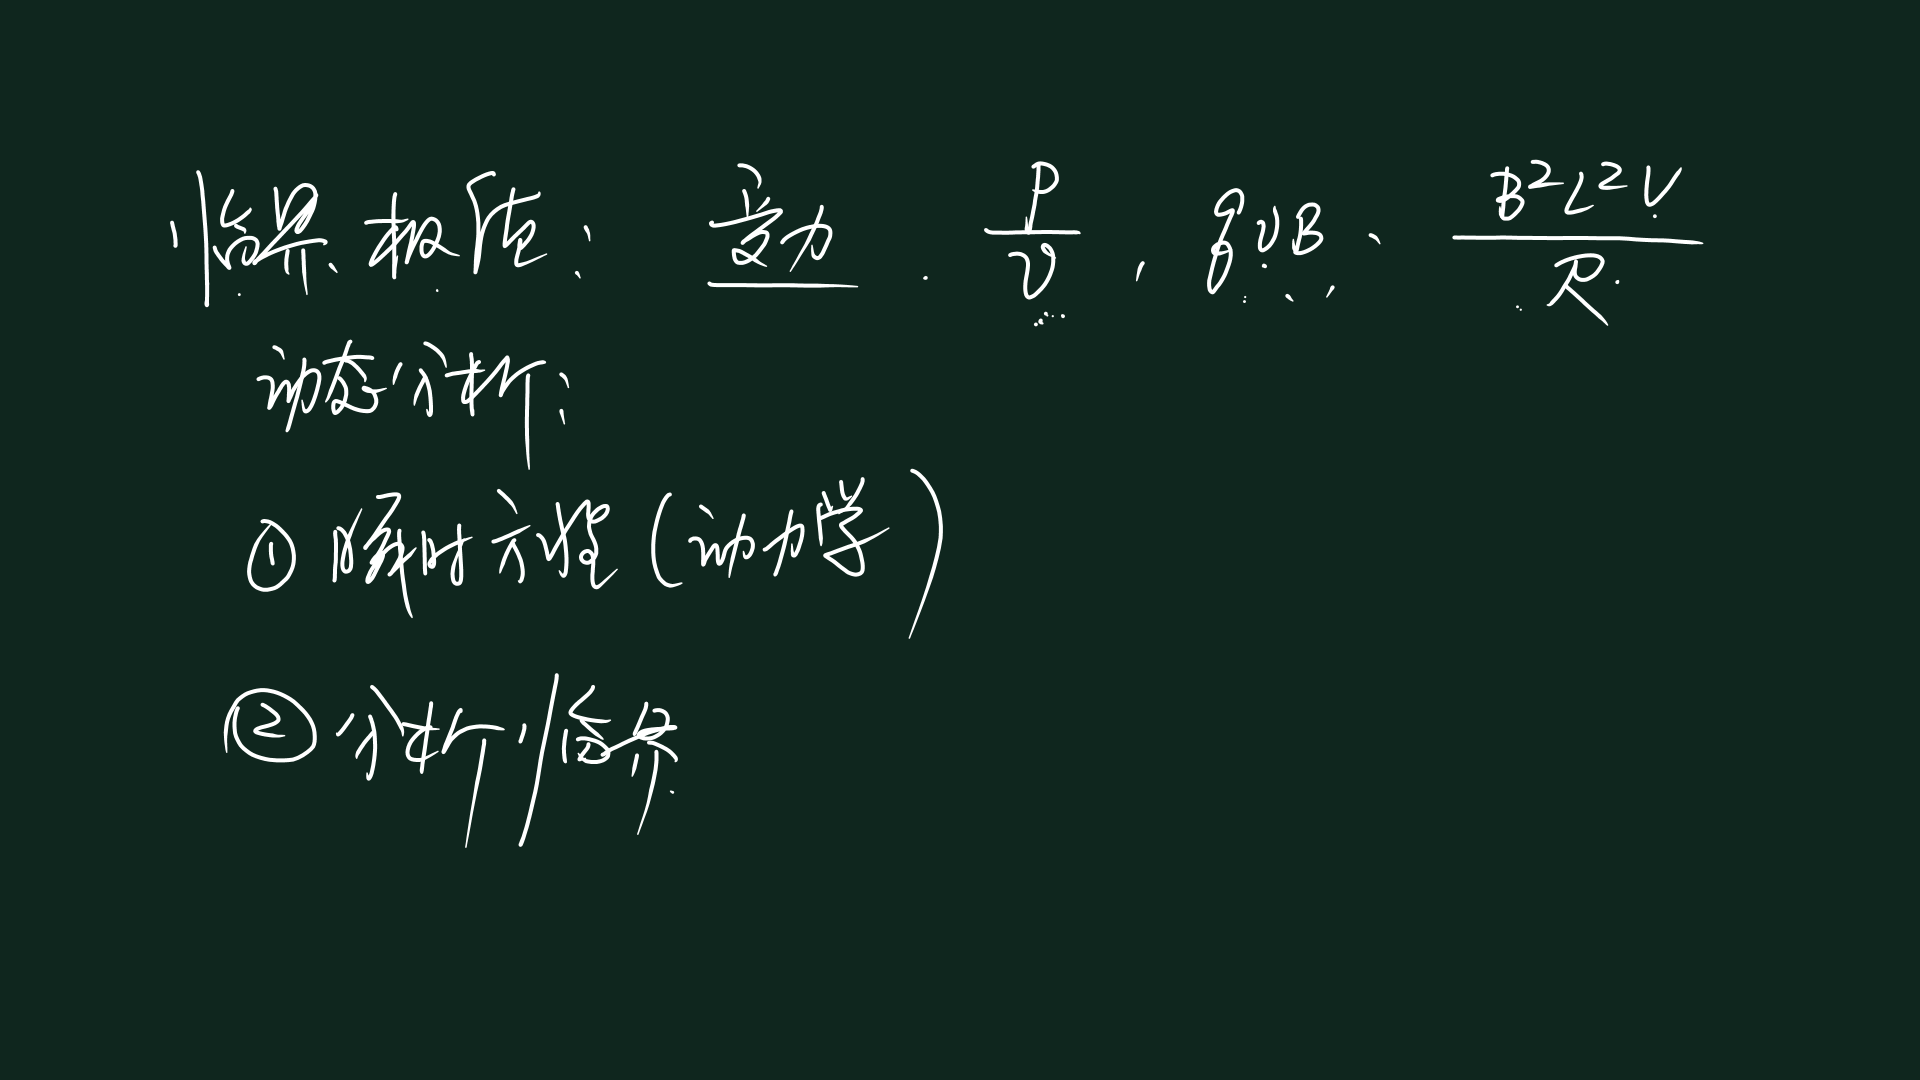 临界极值：变力. P/v, qvB、B²L²v/R
动态分析：
① 瞬时方程(动力学)
② 分析临界